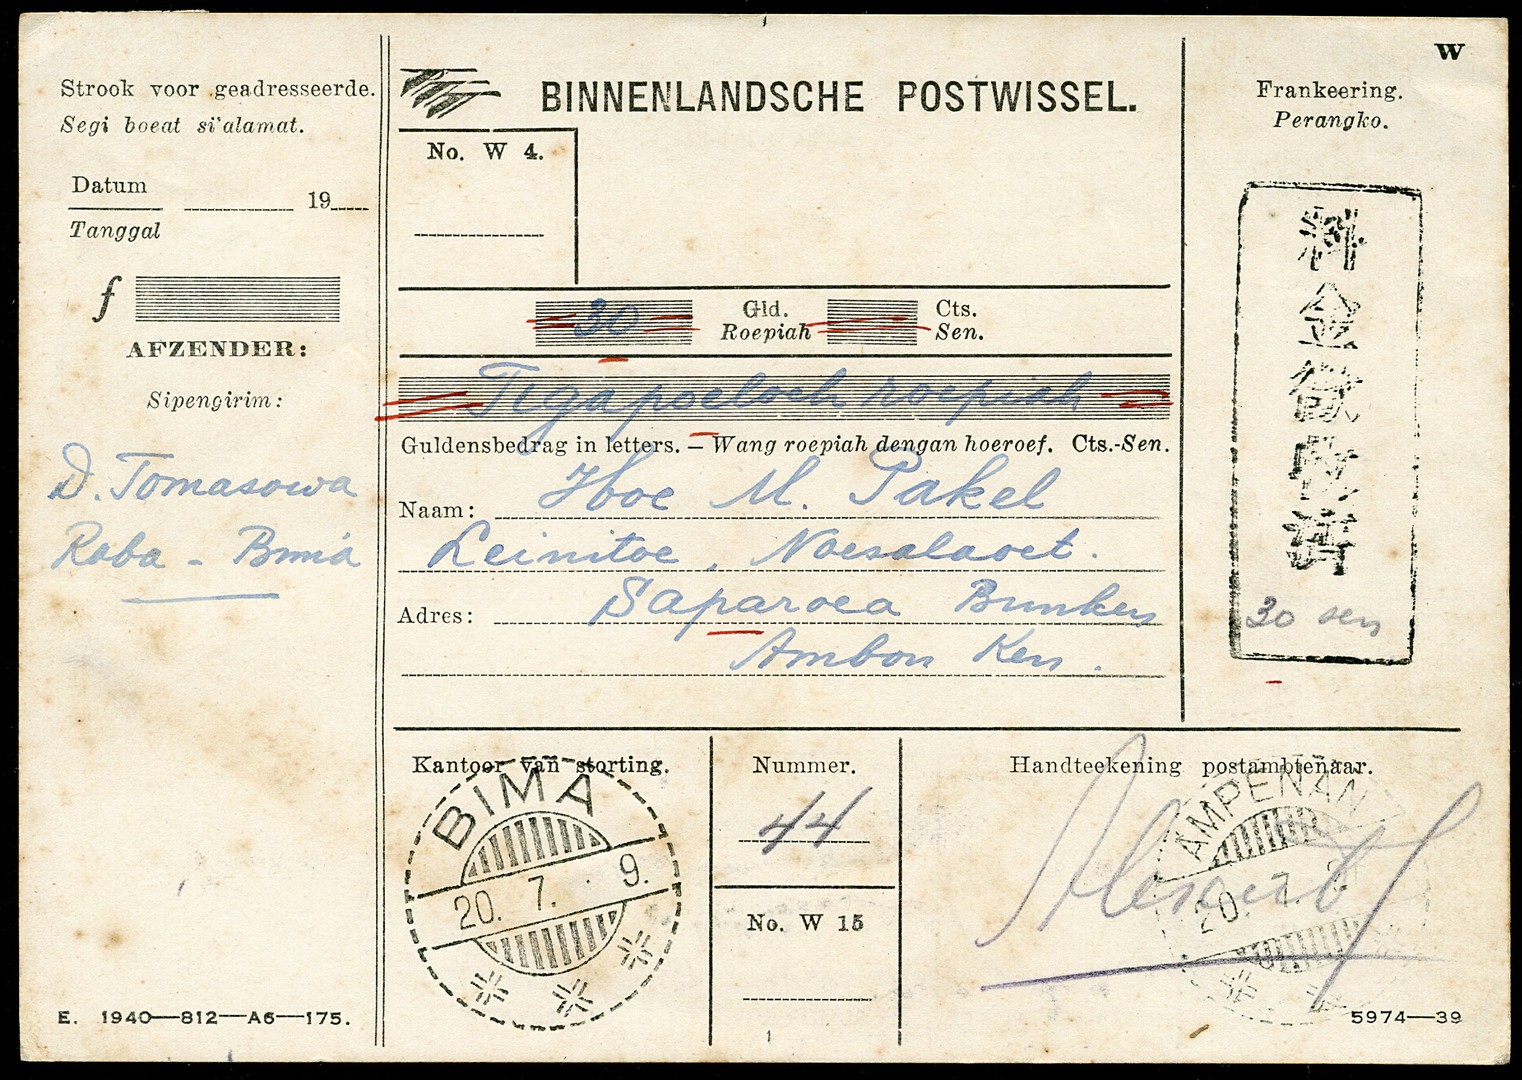 W
Strook voor geadresseerde.
Segi boeat si'alamat.
Datum
19
Tanggal
f
AFZENDER:
Sipengirim:
D. Tomasowa
Raba - Bima
E. 1940—812—A6—175.
BINNENLANDSCHE POSTWISSEL.
No. W 4.
30 Gld. Cts.
Roepiah Sen.
Tigapoeloeh roepiah
Guldensbedrag in letters. — Wang roepiah dengan hoeroef. Cts.-Sen.
Naam: Iboe M. Pakel
Leinitoe, Noesalaoet.
Adres: Saparoea Bunken
Ambon Ken.
Frankeering.
Perangko.
料金徴収済
30 sen
Kantoor van storting.
BIMA
20. 7. 9.
Nummer.
44
No. W 15
Handteekening postambtenaar.
AMPENAN
20. 7.
5974—39